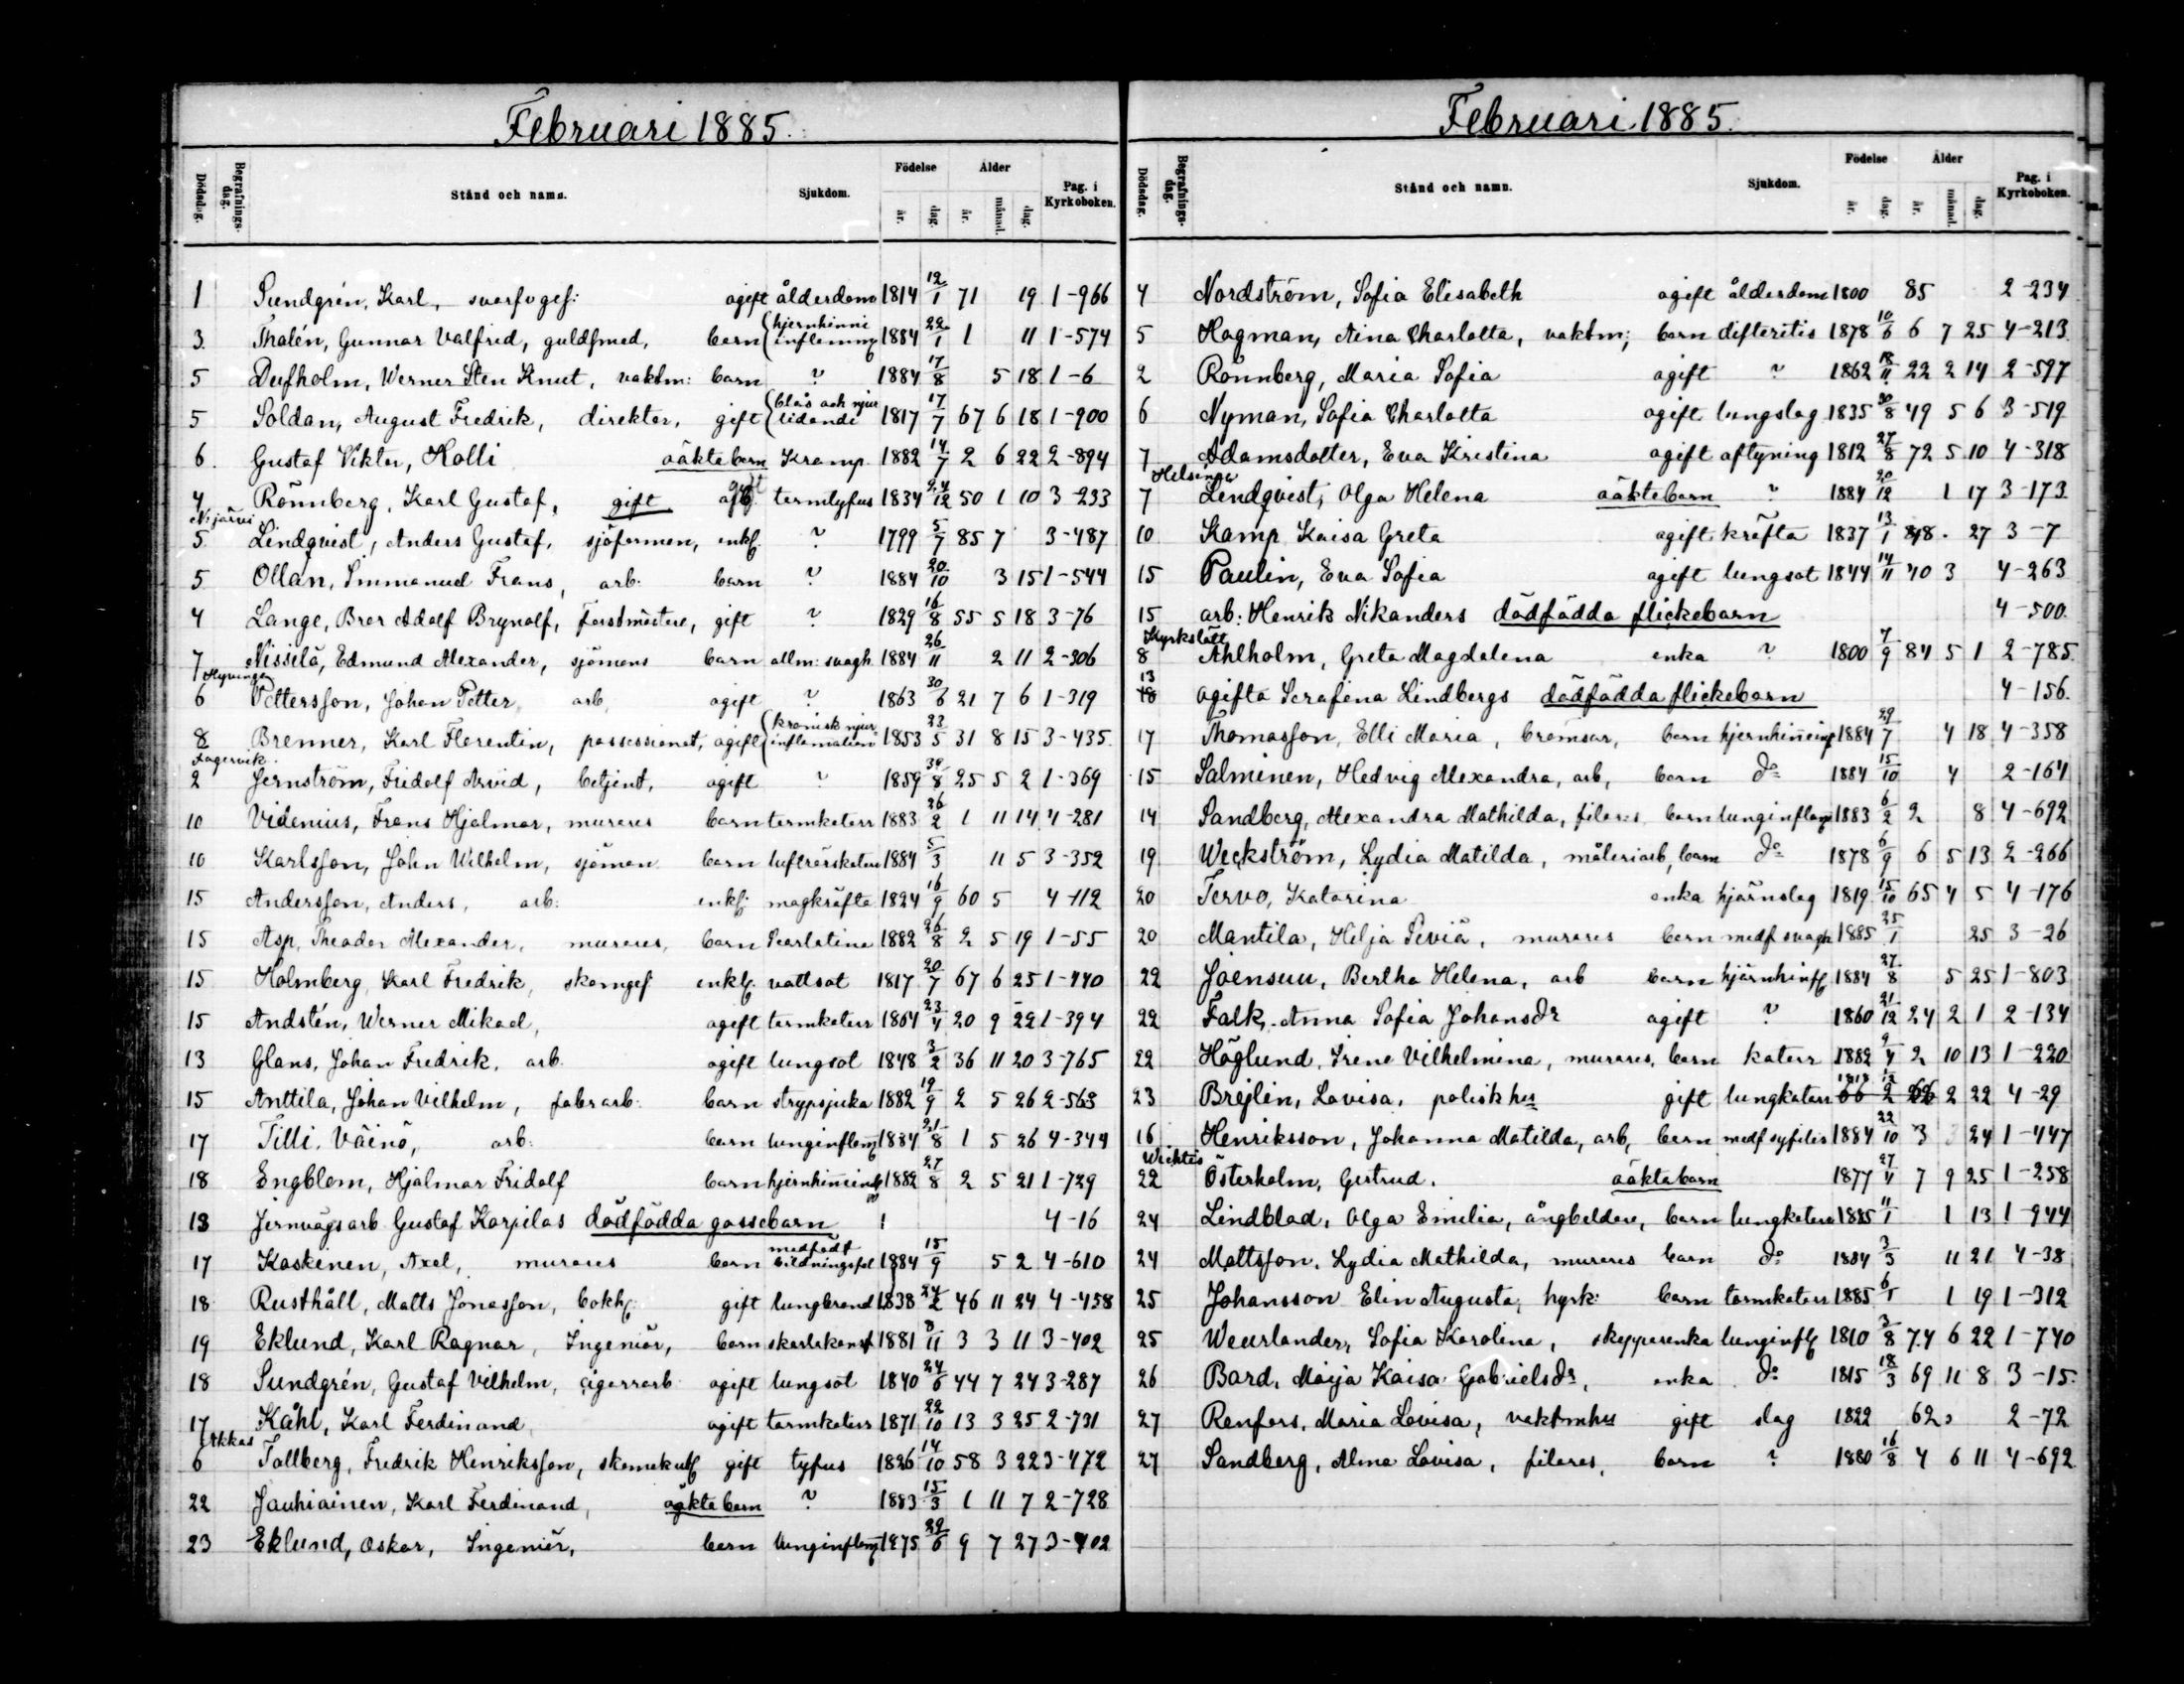 Februari 1885.
Dödsdag. Begrafningsdag. Stånd och namn. Sjukdom. Födelse år. dag. Ålder år. månad. dag. Pag. i Kyrkoboken.
1 Sundgrén, Karl, svarfvgef: ogift ålderdom 1814 12/1 71 19 1-966
3 Thalén, Gunnar Valfrid, guldsmed, barn hjernhinne inflamm 1884 22/1 1 11 1-574
5 Dufholm, Werner Sten Knut, vaktm: barn ? 1884 17/8 5 18 1-6
5 Soldan, August Fredrik, direktor, gift blås och njur lidande 1817 17/7 67 6 18 1-900
6. Gustaf Viktor, Kolli oäkta barn Kramp 1882 14/7 2 6 22 2-894
4 Rönnberg, Karl Gustaf, gift gift termtyfus 1834 24/12 50 1 10 3-233
N:järvi
5 Lindqvist, Anders Gustaf, sjöforman, enkl. ? 1799 5/7 85 7 3-487
5 Ollan, Immanuel Frans, arb. barn ? 1884 20/10 3 15 1-544
4 Lange, Bror Adolf Brynolf, forstmästare, gift ? 1829 16/8 55 5 18 3-76
7 Nissilä, Edmund Alexander, sjömans barn allm: svagh 1884 26/11 2 11 2-306
Hyvinge
6 Pettersson, Johan Petter arb. ogift ? 1863 30/6 21 7 6 1-319
8 Brenner, Karl Florentin, possessionat, ogift kronisk njur inflamation 1853 23/5 31 8 15 3-435
Fagervik
2 Jernström, Fridolf Arvid, betjent, ogift ? 1859 30/8 25 5 2 1-369
10 Videnius, Frans Hjalmar, murares barn tarmkatarr 1883 26/2 1 11 14 4-281
10 Karlsson, John Wilhelm, sjöman barn luftrörskatarr 1884 5/3 11 5 3-352
15 Andersson, Anders, arb: enkl: magkräfta 1824 16/9 60 5 4-112
15 Asp, Theodor Alexander, murares, barn Scarlatina 1882 26/8 2 5 19 1-55
15 Holmberg, Karl Fredrik, skomgef enkl. vattsot 1817 20/7 67 6 25 1-440
15 Andstén, Werner Mikael, ogift tarmkatarr 1864 23/4 20 9 22 1-394
13 Glans, Johan Fredrik, arb. ogift lungsot 1848 3/2 36 11 20 3-765
15 Anttila, Johan Vilhelm, fabrarb. barn strypsjuka 1882 19/9 2 5 26 2-563
17 Tilli, Väinö, arb: barn lunginflam 1884 21/8 1 5 26 4-344
18 Engblom, Hjalmar Fridolf barn hjernhinneinfl 1882 27/8 2 5 21 1-729
13 Jernvägsarb Gustaf Karpilas dödfödda gossebarn 4-16
17 Koskinen, Axel, murares barn medfödt bildningsfel 1884 15/9 5 2 4-610
18 Rusthåll, Matts Jonasson, bokh. gift lungbrand 1838 24/2 46 11 24 4-458
19 Eklund, Karl Ragnar, Ingeniör, barn skarlakansf 1881 8/11 3 3 11 3-402
18 Sundgrén, Gustaf Vilhelm, cigarrarb ogift lungsot 1840 24/6 44 7 24 3-287
17 Kåhl, Karl Ferdinand, ogift tarmkatarr 1871 22/10 13 3 25 2-731
Akkas
6 Tallberg, Fredrik Henriksson, gift tyfus 1826 14/10 58 3 22 3-472
22 Jauhiainen, Karl Ferdinand, oäkta barn ? 1883 15/3 1 11 7 2-728
23 Eklund, Oskar, Ingeniör, barn lunginflam 1875 29/6 9 7 27 3-402
Februari 1885.
Dödsdag. Begrafningsdag. Stånd och namn. Sjukdom. Födelse år. dag. Ålder år. månad. dag. Pag. i Kyrkoboken.
4 Nordström, Sofia Elisabeth ogift ålderdom 1800 85 2-234
5 Hagman, Nina Charlotta, vaktm; barn difteritis 1878 10/6 6 7 25 4-213
2 Rönnberg, Maria Sofia ogift ? 1862 18/11 22 2 14 2-597
6 Nyman, Sofia Charlotta ogift lungslag 1835 30/8 49 5 6 3-519
7 Adamsdotter, Eva Kristina ogift aftyning 1812 27/8 72 5 10 4-318
Helsinge
7 Lindqvist, Olga Helena oäkta barn ? 1884 20/12 1 17 3-173
10 Kamp Kaisa Greta ogift kräfta 1837 13/1 48 27 3-7
15 Paulin, Eva Sofia ogift lungsot 1844 14/11 40 3 4-263
15 arb: Henrik Nikanders dödfödda flickebarn 4-500.
Kyrkslätt
8 Ahlholm, Greta Magdalena enka ? 1800 7/9 84 5 1 2-785
13 18 ogifta Serafina Lindbergs dödfödda flickebarn 4-156.
17 Thomasson, Elli Maria, bromsar, barn hjernhinneinf 1884 29/7 4 18 4-358
15 Salminen, Hedvig Alexandra, arb, barn do 1884 15/10 4 2-164
14 Sandberg, Alexandra Mathilda, filares barn lunginflam 1883 6/2 2 8 4-692
19 Weckström, Lydia Matilda, måleriarb, barn do 1878 6/9 6 5 13 2-266
20 Tervo, Katarina enka hjärnslag 1819 15/10 65 4 5 4-176
20 Mantila, Helja Seviä, murares barn medf svagh 1885 25/1 25 3-26
22 Joensuu, Bertha Helena, arb barn hjärnhinfl 1884 27/8 5 25 1-803
22 Falk, Anna Sofia Johansdr ogift ? 1860 21/12 24 2 1 2-134
22 Höglund, Irene Vilhelmina, murares, barn katarr 1882 9/4 2 10 13 1-220
23 Brejlin, Lovisa, polisk hu gift lungkatarr 1818 1/12 66 2 22 4-29
16 Henriksson, Johanna Matilda, arb, barn medf syfilis 1884 22/10 3 24 1-447
Wichtis
22 Österholm, Gertrud. oäkta barn 1877 27/4 7 9 25 1-258
24 Lindblad, Olga Emilia, ångbeldare, barn lungkatarr 1885 11/1 1 13 1-944
24 Mattsson, Lydia Mathilda, murares barn do 1884 3/3 11 21 4-38
25 Johansson Elin Augusta, hyrk: barn tarmkatarr 1885 6/1 1 19 1-312
25 Weurlander, Sofia Karolina, skepparenka lunginfl 1810 3/8 74 6 22 1-740
26 Bard, Maija Kaisa Gabrielsdr, enka do 1815 18/3 69 11 8 3-15.
27 Renfors, Maria Lovisa, vaktmhu gift slag 1822 62 2-72
27 Sandberg, Alma Lovisa, filares, barn ? 1880 16/8 4 6 11 4-692